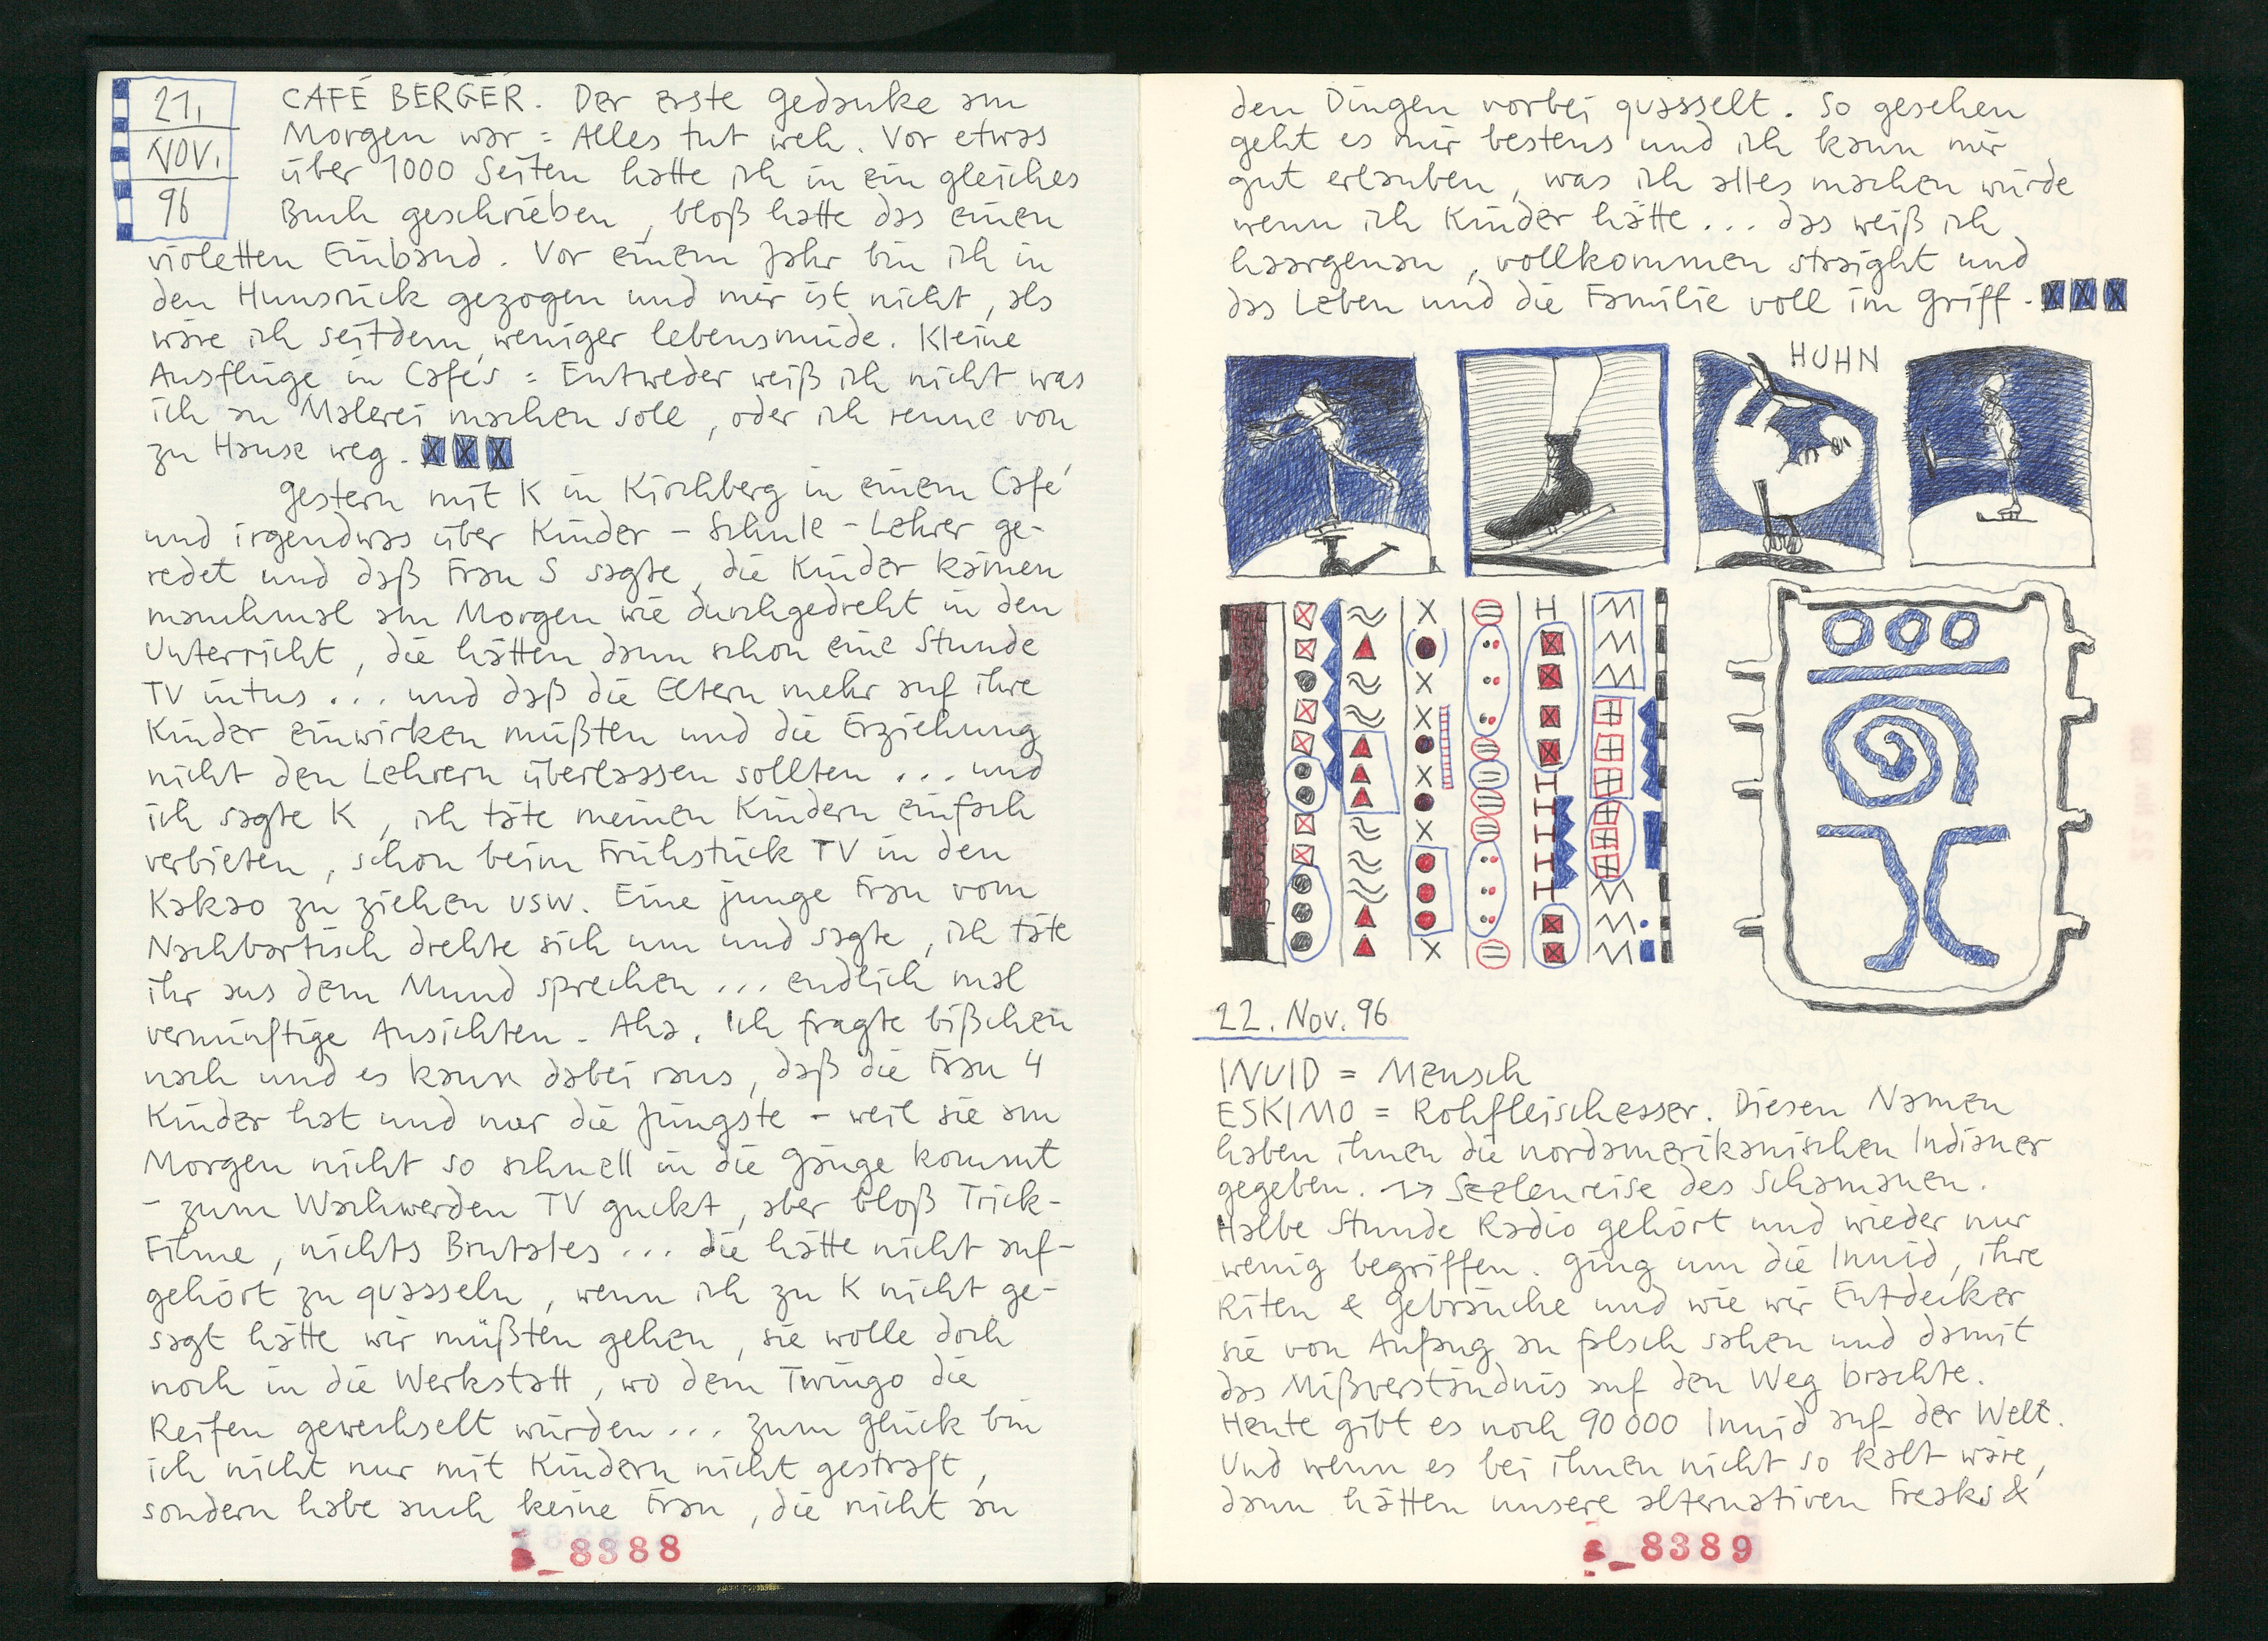 21.
NOV.
96
CAFÉ BERGER. Der erste Gedanke am
Morgen war = Alles tut weh. Vor etwas
über 1000 Seiten hatte ich in ein gleiches
Buch geschrieben, bloß hatte das einen
violetten Einband. Vor einem Jahr bin ich in
den Hunsrück gezogen und mir ist nicht, als
wäre ich seitdem weniger lebensmüde. Kleine
Ausflüge in Cafés = Entweder weiß ich nicht was
ich an Malerei machen soll, oder ich renne von
zu Hause weg.
Gestern mit K in Kirchberg in einem Café
und irgendwas über Kinder - Schule - Lehrer ge-
redet und daß Frau S sagte, die Kinder kämen
manchmal am Morgen wie durchgedreht in den
Unterricht, die hätten dann schon eine Stunde
TV intus ... und daß die Eltern mehr auf ihre
Kinder einwirken müßten und die Erziehung
nicht den Lehrern überlassen sollten ... und
ich sagte K, ich täte meinen Kindern einfach
verbieten, schon beim Frühstück TV in den
Kakao zu ziehen usw. Eine junge Frau vom
Nachbartisch drehte sich um und sagte, ich täte
ihr aus dem Mund sprechen ... endlich mal
vernünftige Ansichten. Aha. Ich fragte bißchen
nach und es kam dabei raus, daß die Frau 4
Kinder hat und nur die Jüngste - weil sie am
Morgen nicht so schnell in die Gänge kommt
- zum Wachwerden TV guckt, aber bloß Trick-
Filme, nichts Brutales ... die hätte nicht auf-
gehört zu quasseln, wenn ich zu K nicht ge-
sagt hätte wir müßten gehen, sie wolle doch
noch in die Werkstatt, wo dem Twingo die
Reifen gewechselt würden ... zum Glück bin
ich nicht nur mit Kindern nicht gestraft,
sondern habe auch keine Frau, die nicht an
8388
den Dingen vorbei quasselt. So gesehen
geht es mir bestens und ich kann mir
gut erlauben, was ich alles machen würde
wenn ich Kinder hätte ... das weiß ich
haargenau, vollkommen straight und
das Leben und die Familie voll im Griff.
HUHN
22. Nov. 96
INUID = Mensch
ESKIMO = Rohfleischesser. Diesen Namen
haben ihnen die nordamerikanischen Indianer
gegeben. → Seelenreise des Schamanen.
Halbe Stunde Radio gehört und wieder nur
wenig begriffen. Ging um die Inuid, ihre
Riten & Gebräuche und wie wir Entdecker
sie von Anfang an falsch sahen und damit
das Mißverständnis auf den Weg brachte.
Heute gibt es noch 90 000 Inuid auf der Welt.
Und wenn es bei ihnen nicht so kalt wäre,
dann hätten unsere alternativen Freaks &
8389